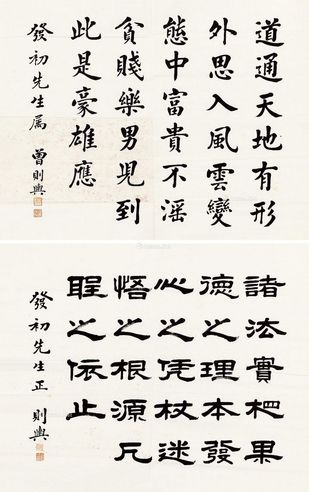 道通天地有形
外思入風雲變
態中富貴不滛
貧賤樂男兒到
此是豪雄應
發初先生属 曾則興
諸法實杷果
德之理本發
心之凭杖迷
悟之根源凡
聖之依止
發初先生正 則興